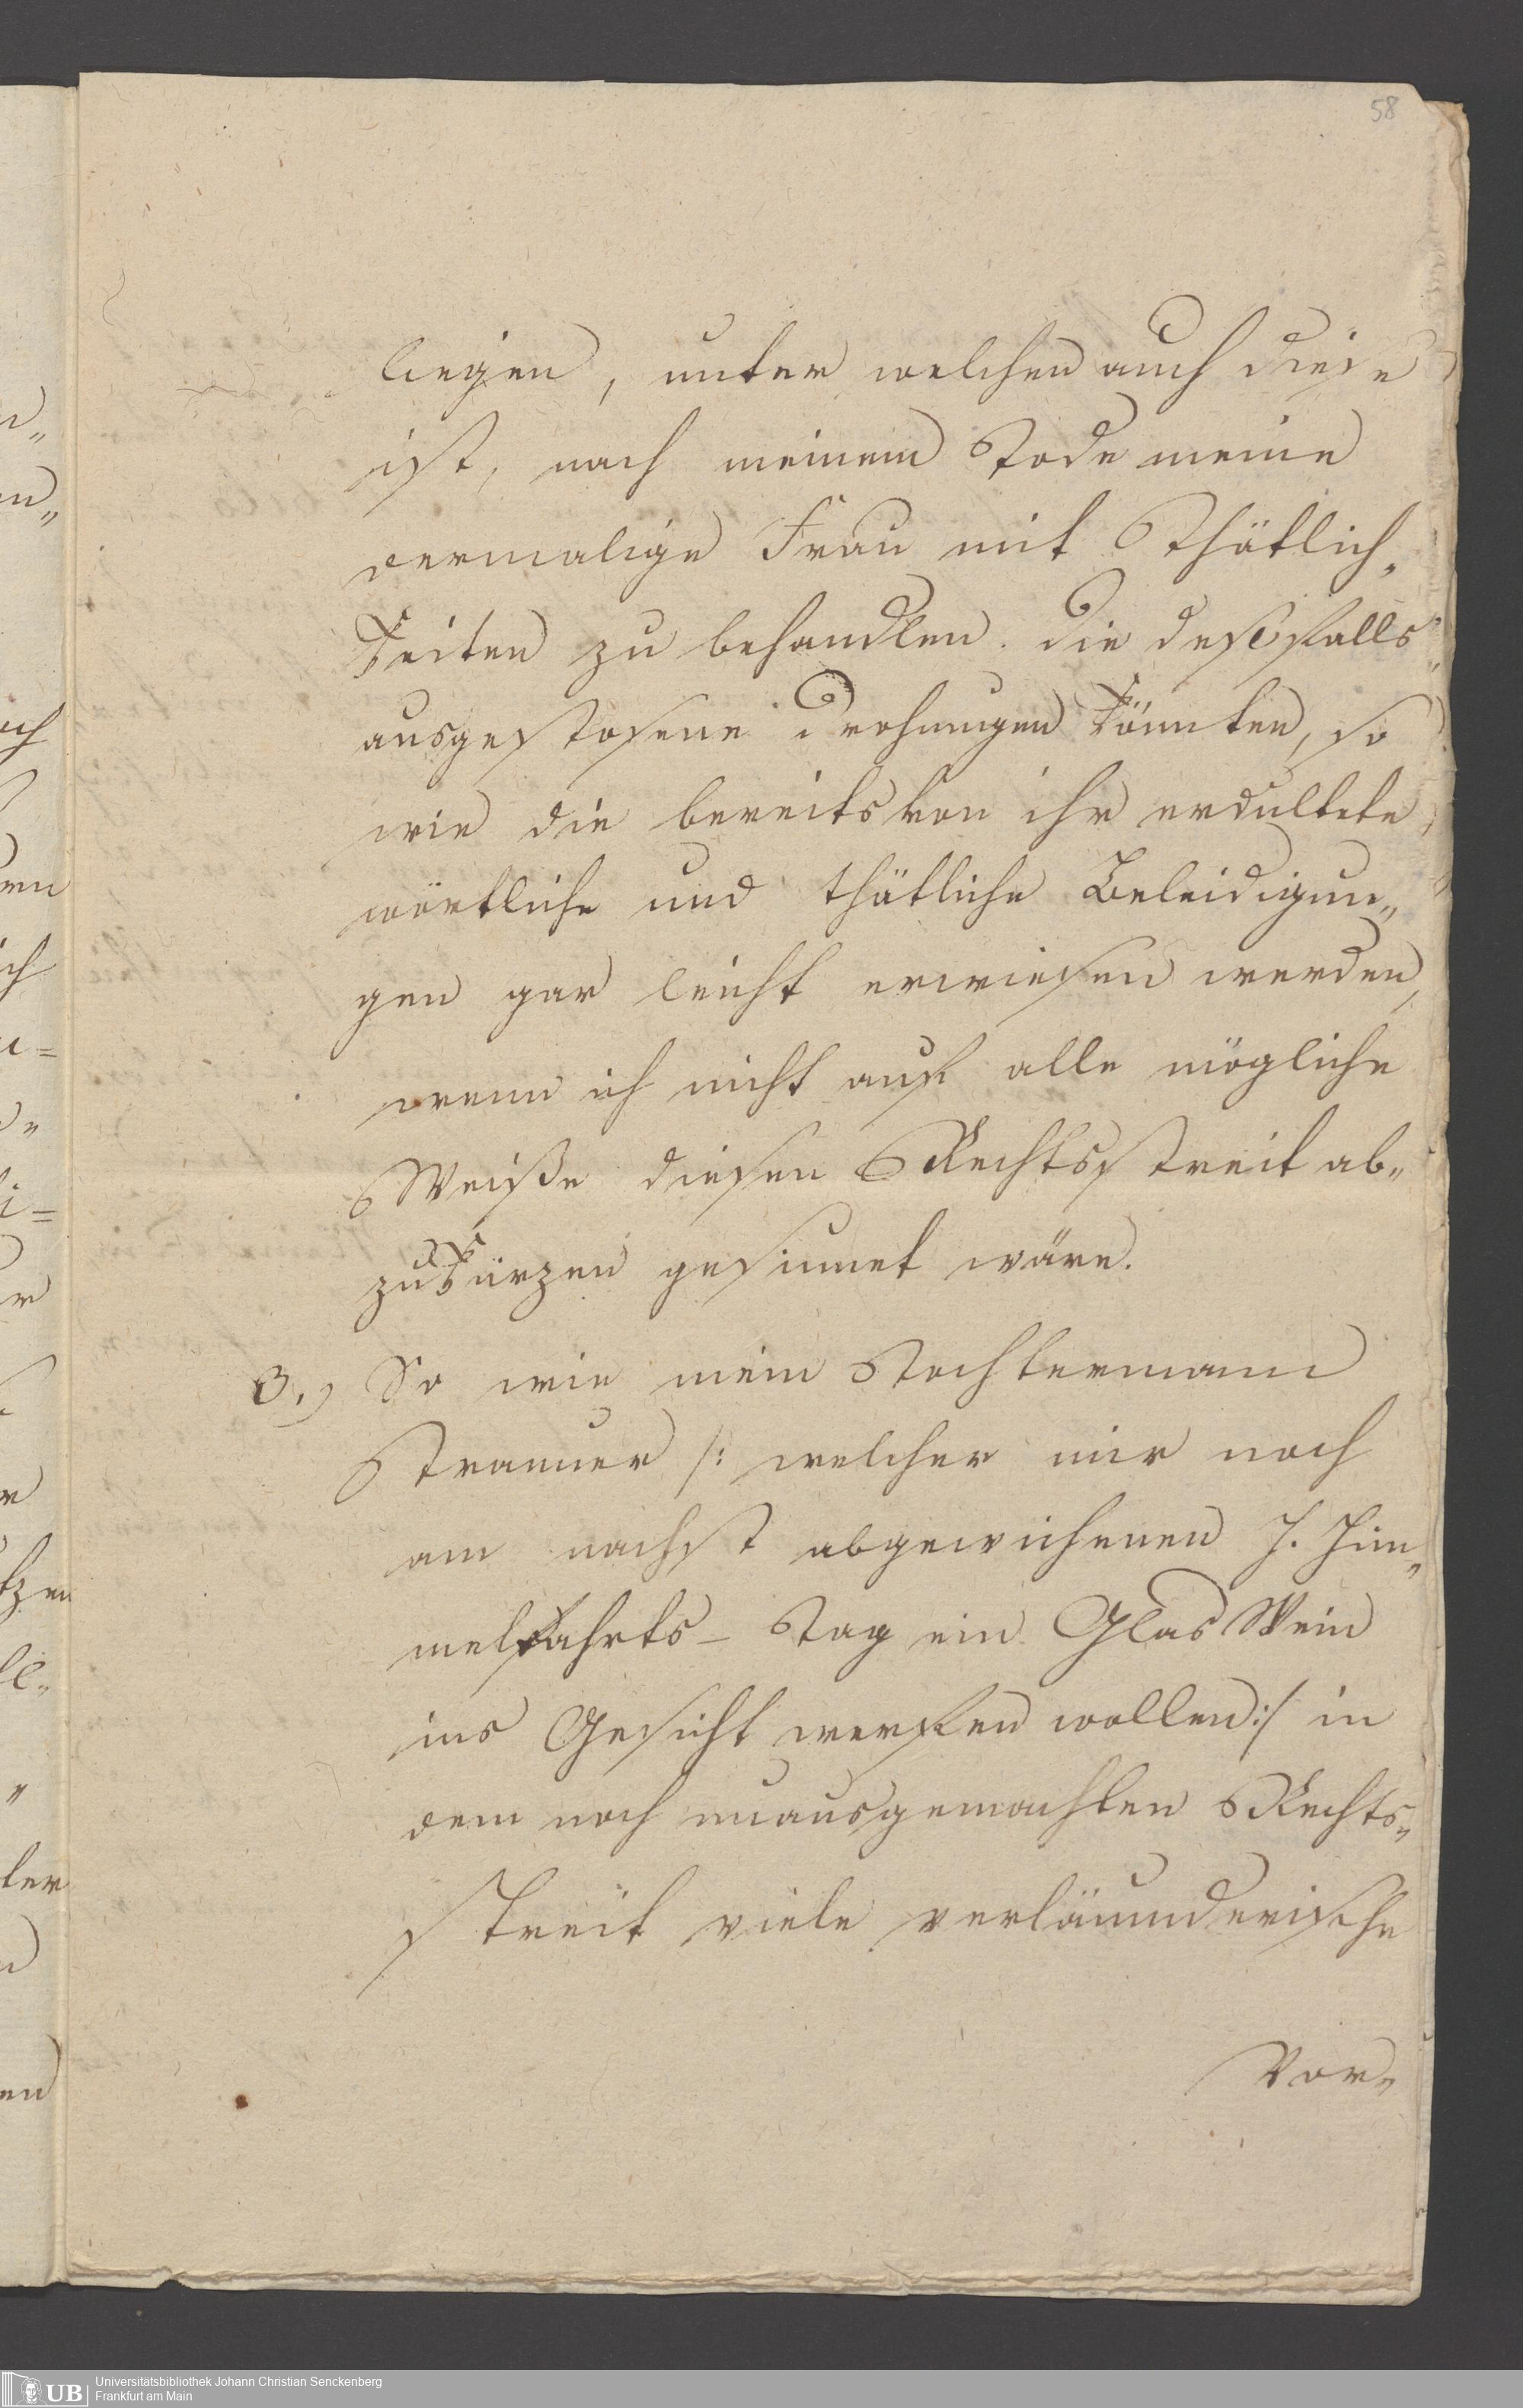 58
liegen, unter welchen auch diese
ist, nach meinem Tode meine
dermalige Frau mit Thätlich„
keiten zu behandlen. Die deßfalls„
ausgestosene Drohungen könnten, so
wie die bereits von ihr erdultete,
wörtliche und thätliche Beleidigun„
gen gar leicht erwiesen werden,
wenn ich nicht auf alle mögliche
Weiße diesen Rechtsstreit ab„
zukürzen gesinnet wäre.
3.) So wie mein Tochtermann
Stranner /: welcher mir noch
am nächst abgewichenen H. Him„
melfahrts- Tag ein Glas Wein
ins Gesicht werfen wollen :/ in
dem noch unausgemachten Rechts„
streit viele verläumderische
Vor„
UB
Universitätsbibliothek Johann Christian Senckenberg
Frankfurt am Main